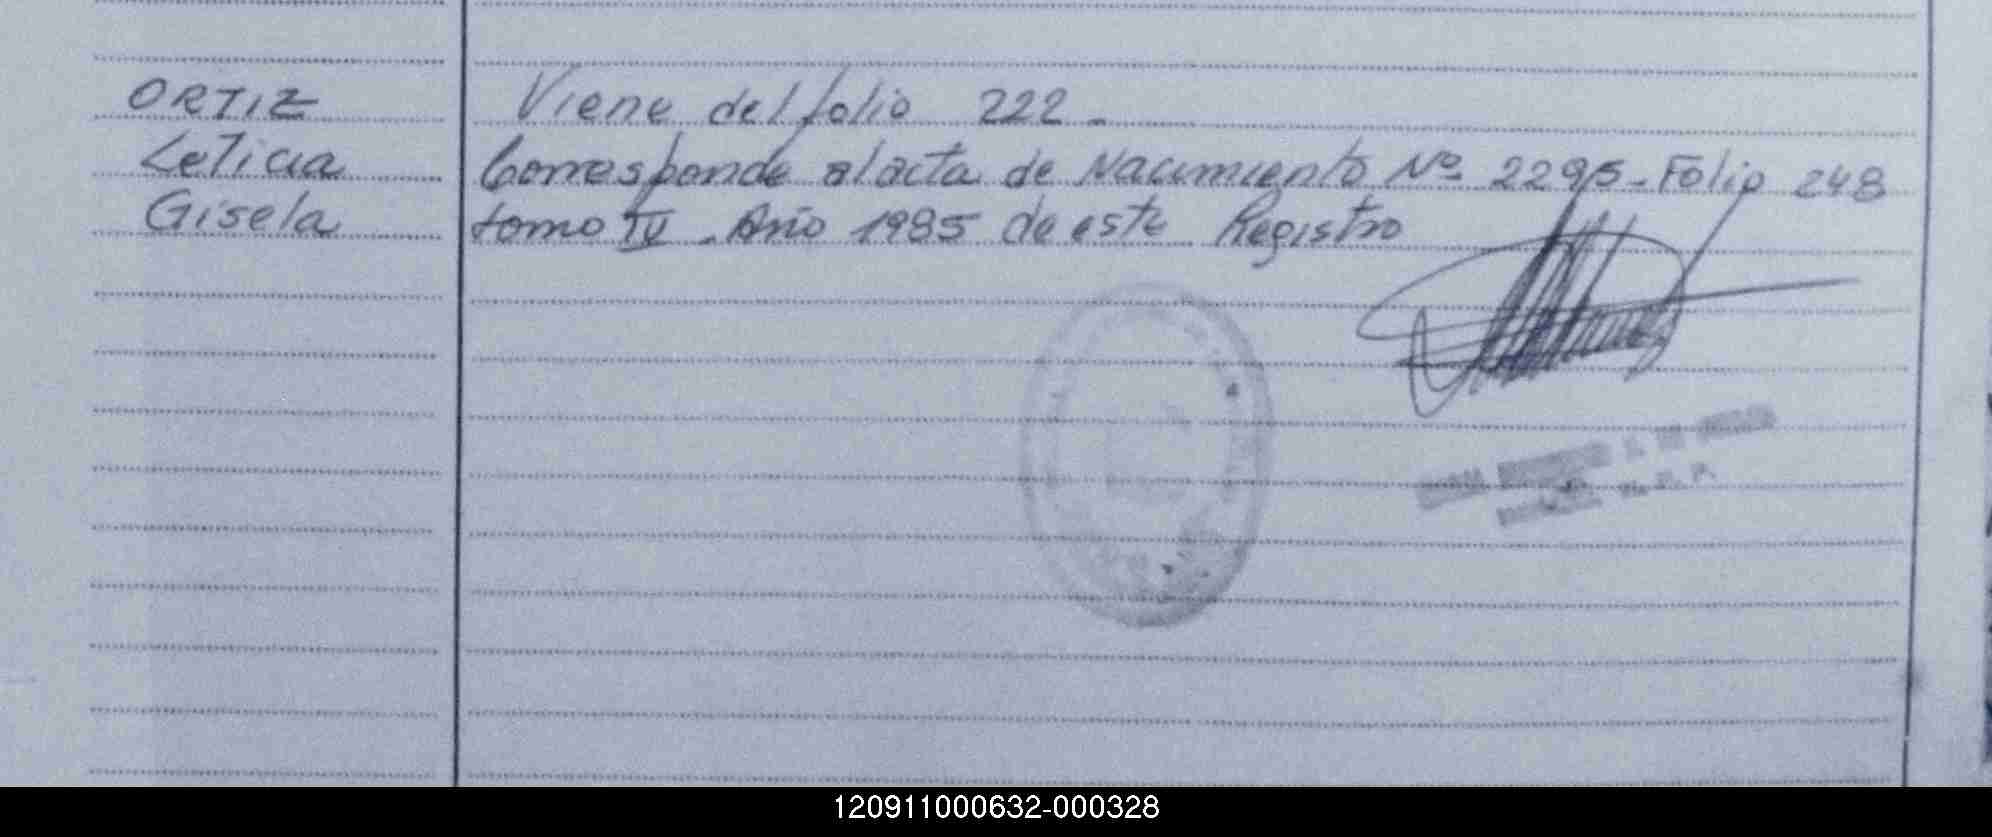 ORTIZ
Leticia
Gisela
Viene del folio 222 -
Corresponde al acta de Nacimiento Nº 2295 - Folio 248
tomo IV - Año 1985 de este Registro
120911000632-000328